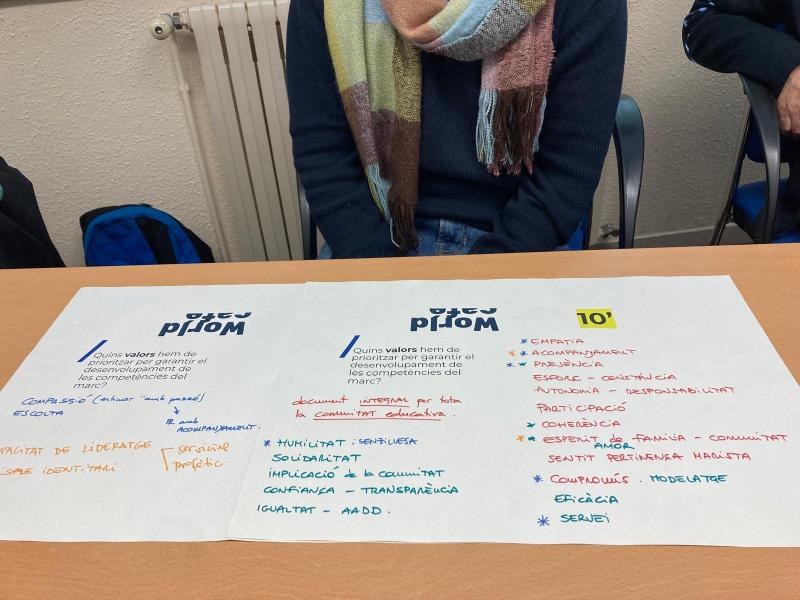 World
café
Quins valors hem de
prioritzar per garantir el
desenvolupament de
les competències del
marc?
COMPASSIÓ (estimar "amb passió)
ESCOLTA
IR amb
ACOMPANYAMENT.
PACITAT DE LIDERATGE
servicial
profètic
IDENTITARI
World
café
Quins valors hem de
prioritzar per garantir el
desenvolupament de
les competències del
marc?
document INTEGRAL per tota
la COMUNITAT EDUCATIVA.
* HUMILITAT : SENZILLESA
SOLIDARITAT
IMPLICACIÓ de la COMUNITAT
CONFIANÇA - TRANSPARÈNCIA
IGUALTAT - AADD.
10'
* EMPATIA
* * ACOMPANYAMENT
* * PRESÈNCIA
ESFORÇ - CONSTÀNCIA
AUTONOMIA - RESPONSABILITAT
PARTICIPACIÓ
* COHERÈNCIA
* * ESPERIT de FAMÍLIA - COMUNITAT
AMOR
SENTIT PERTINENSA MARISTA
* COMPROMÍS . MODELATGE
EFICÀCIA
* SERVEI